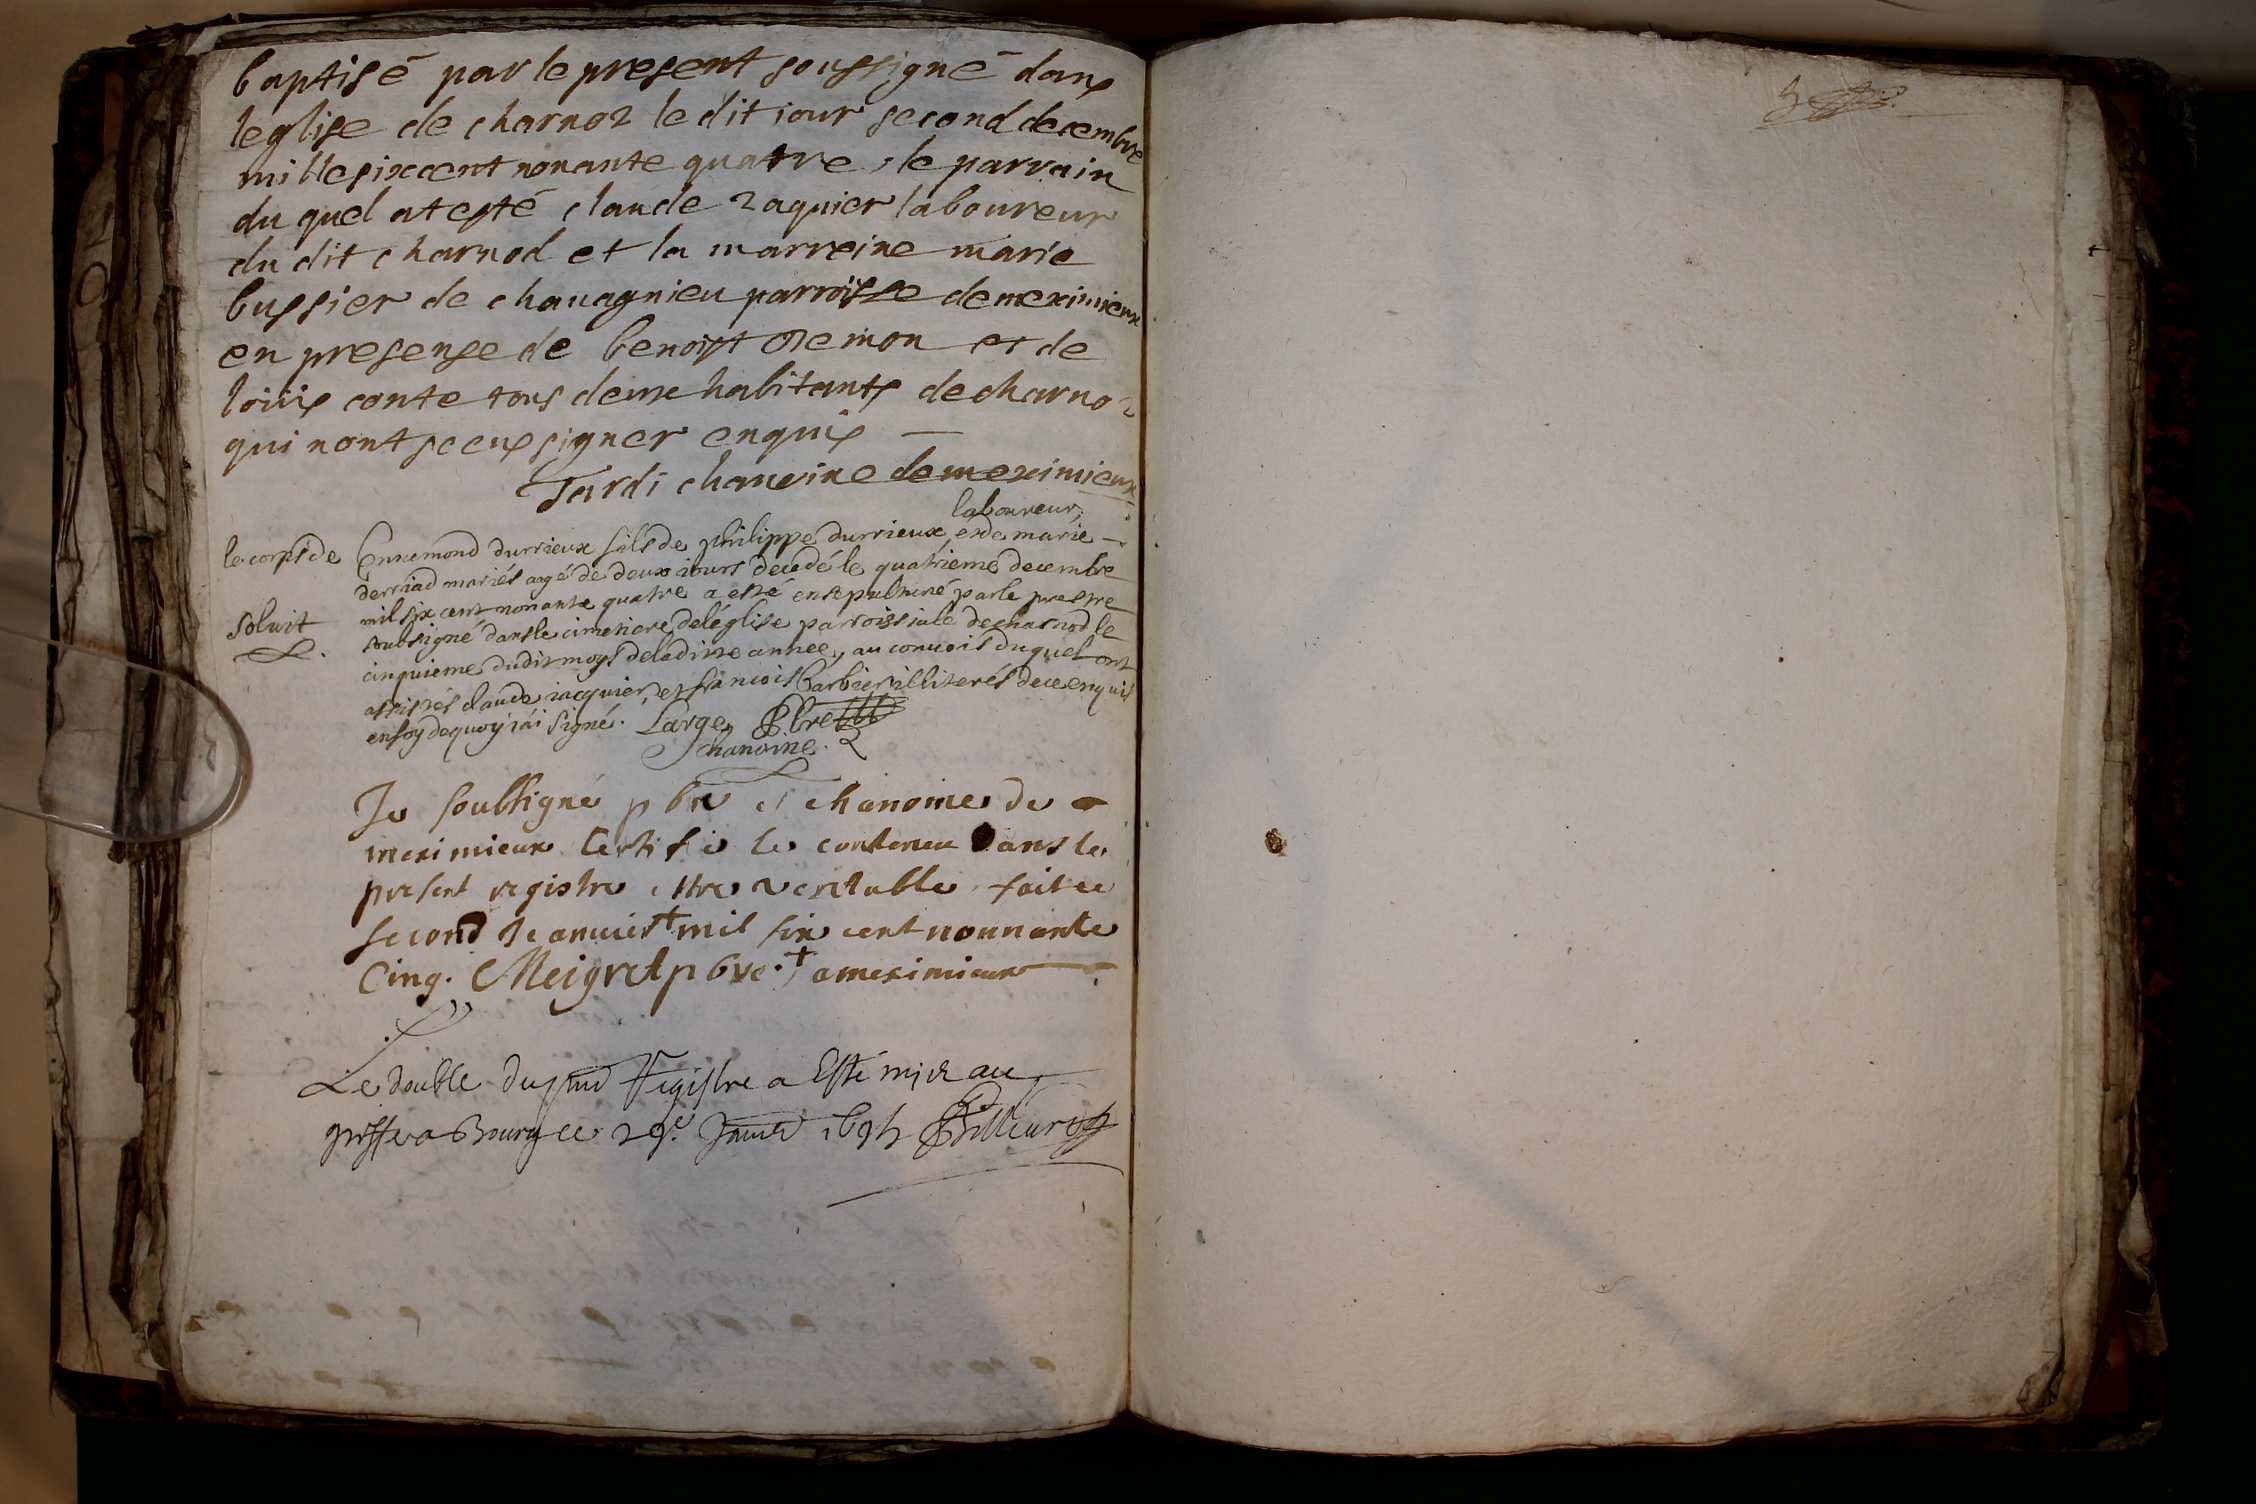 baptisé par le present soussigné dans
leglise de charnoz le dit iour second decembre
mille sixcent nonante quatre, le parrain
du quel at esté claude zaquier laboureur
du dit charnod et la marreine marie
bussier de chauagnieu parroisse de meximieux
en presense de benoist et de
loüis conte tous deux habitants de charnoz
qui nont sceus signer enquis
Tardi chanoine de meximieux
laboureur,
le corps de Ennemond durrieux fils de philippe durrieux et de marie
derriad mariés agé de deux iours decedé le quatrieme decembre
mil six cent nonante quatre a esté ensepulturé par le prestre
soluit
soubsigné dans le cimetiere de l'église parroissiale de charnod le
cinquieme dudit moys de laditte année, au conuois duquel ont
assistés claude iacquier, et francois barbier illiterés de ce enquis
en foy de quoy i'ai signé. Large, Pbre
chanoine.
Je soubsigné pbre et chanoine de
meximieux Certifie le conteneu dans le
present registre estre veritable fait ce
second Jeanuier mil six cent nonnante
Cinq. Meigret pbre. a meximieux
Le double du pnt Registre a Esté mis au
greffe a Bourg ce 29e. Janv 1695